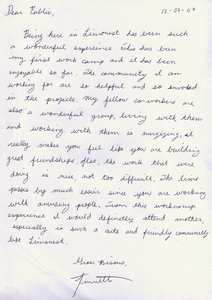 Dear Public, 12-07-07
Being here in Limonest has been such
a wonderful experience. This has been
my first work camp and it has been
enjoyable so far. The community I am
working for are so helpful and so involved
in the projects. My fellow co-workers are
also a wonderful group, living with them
and working with them is surprising, it
really makes you feel like you are building
great friendships. Also, the work that were
doing is nice, not too difficult. The time
passes by much easier since you are working
with amusing people. From this workcamp
experience I would definitely attend another,
especially in such a cute and friendly community
like Limonest.
Gros Bisous,